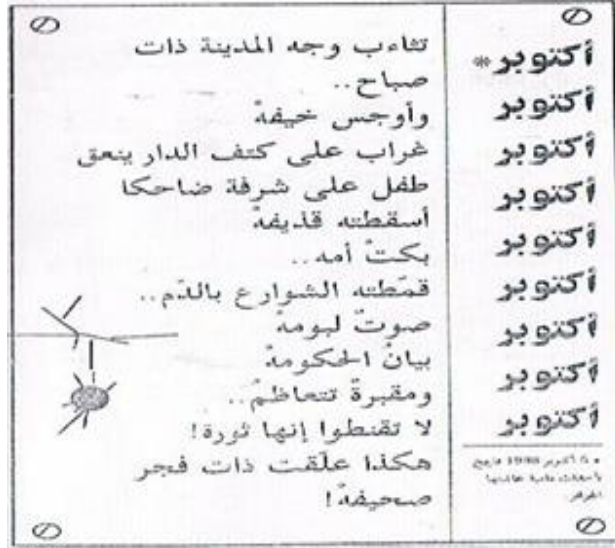 أكتوبر*
أكتوبر
أكتوبر
أكتوبر
أكتوبر
أكتوبر
أكتوبر
أكتوبر
أكتوبر
* 5 أكتوبر 1988 تاريخ
تثاءب وجه المدينة ذات
صباح..
وأوجس خيفهْ
غراب على كتف الدار ينعق
طفل على شرفة ضاحكا
أسقطته قذيفهْ
بكتْ أمه..
قمّطته الشوارع بالدّم..
صوتٌ لبومهْ
بيانُ الحكومهْ
ومقبرةٌ تتعاظمُ..
لا تقنطوا إنها ثورة!
هكذا علّقت ذات فجر
صحيفهْ!